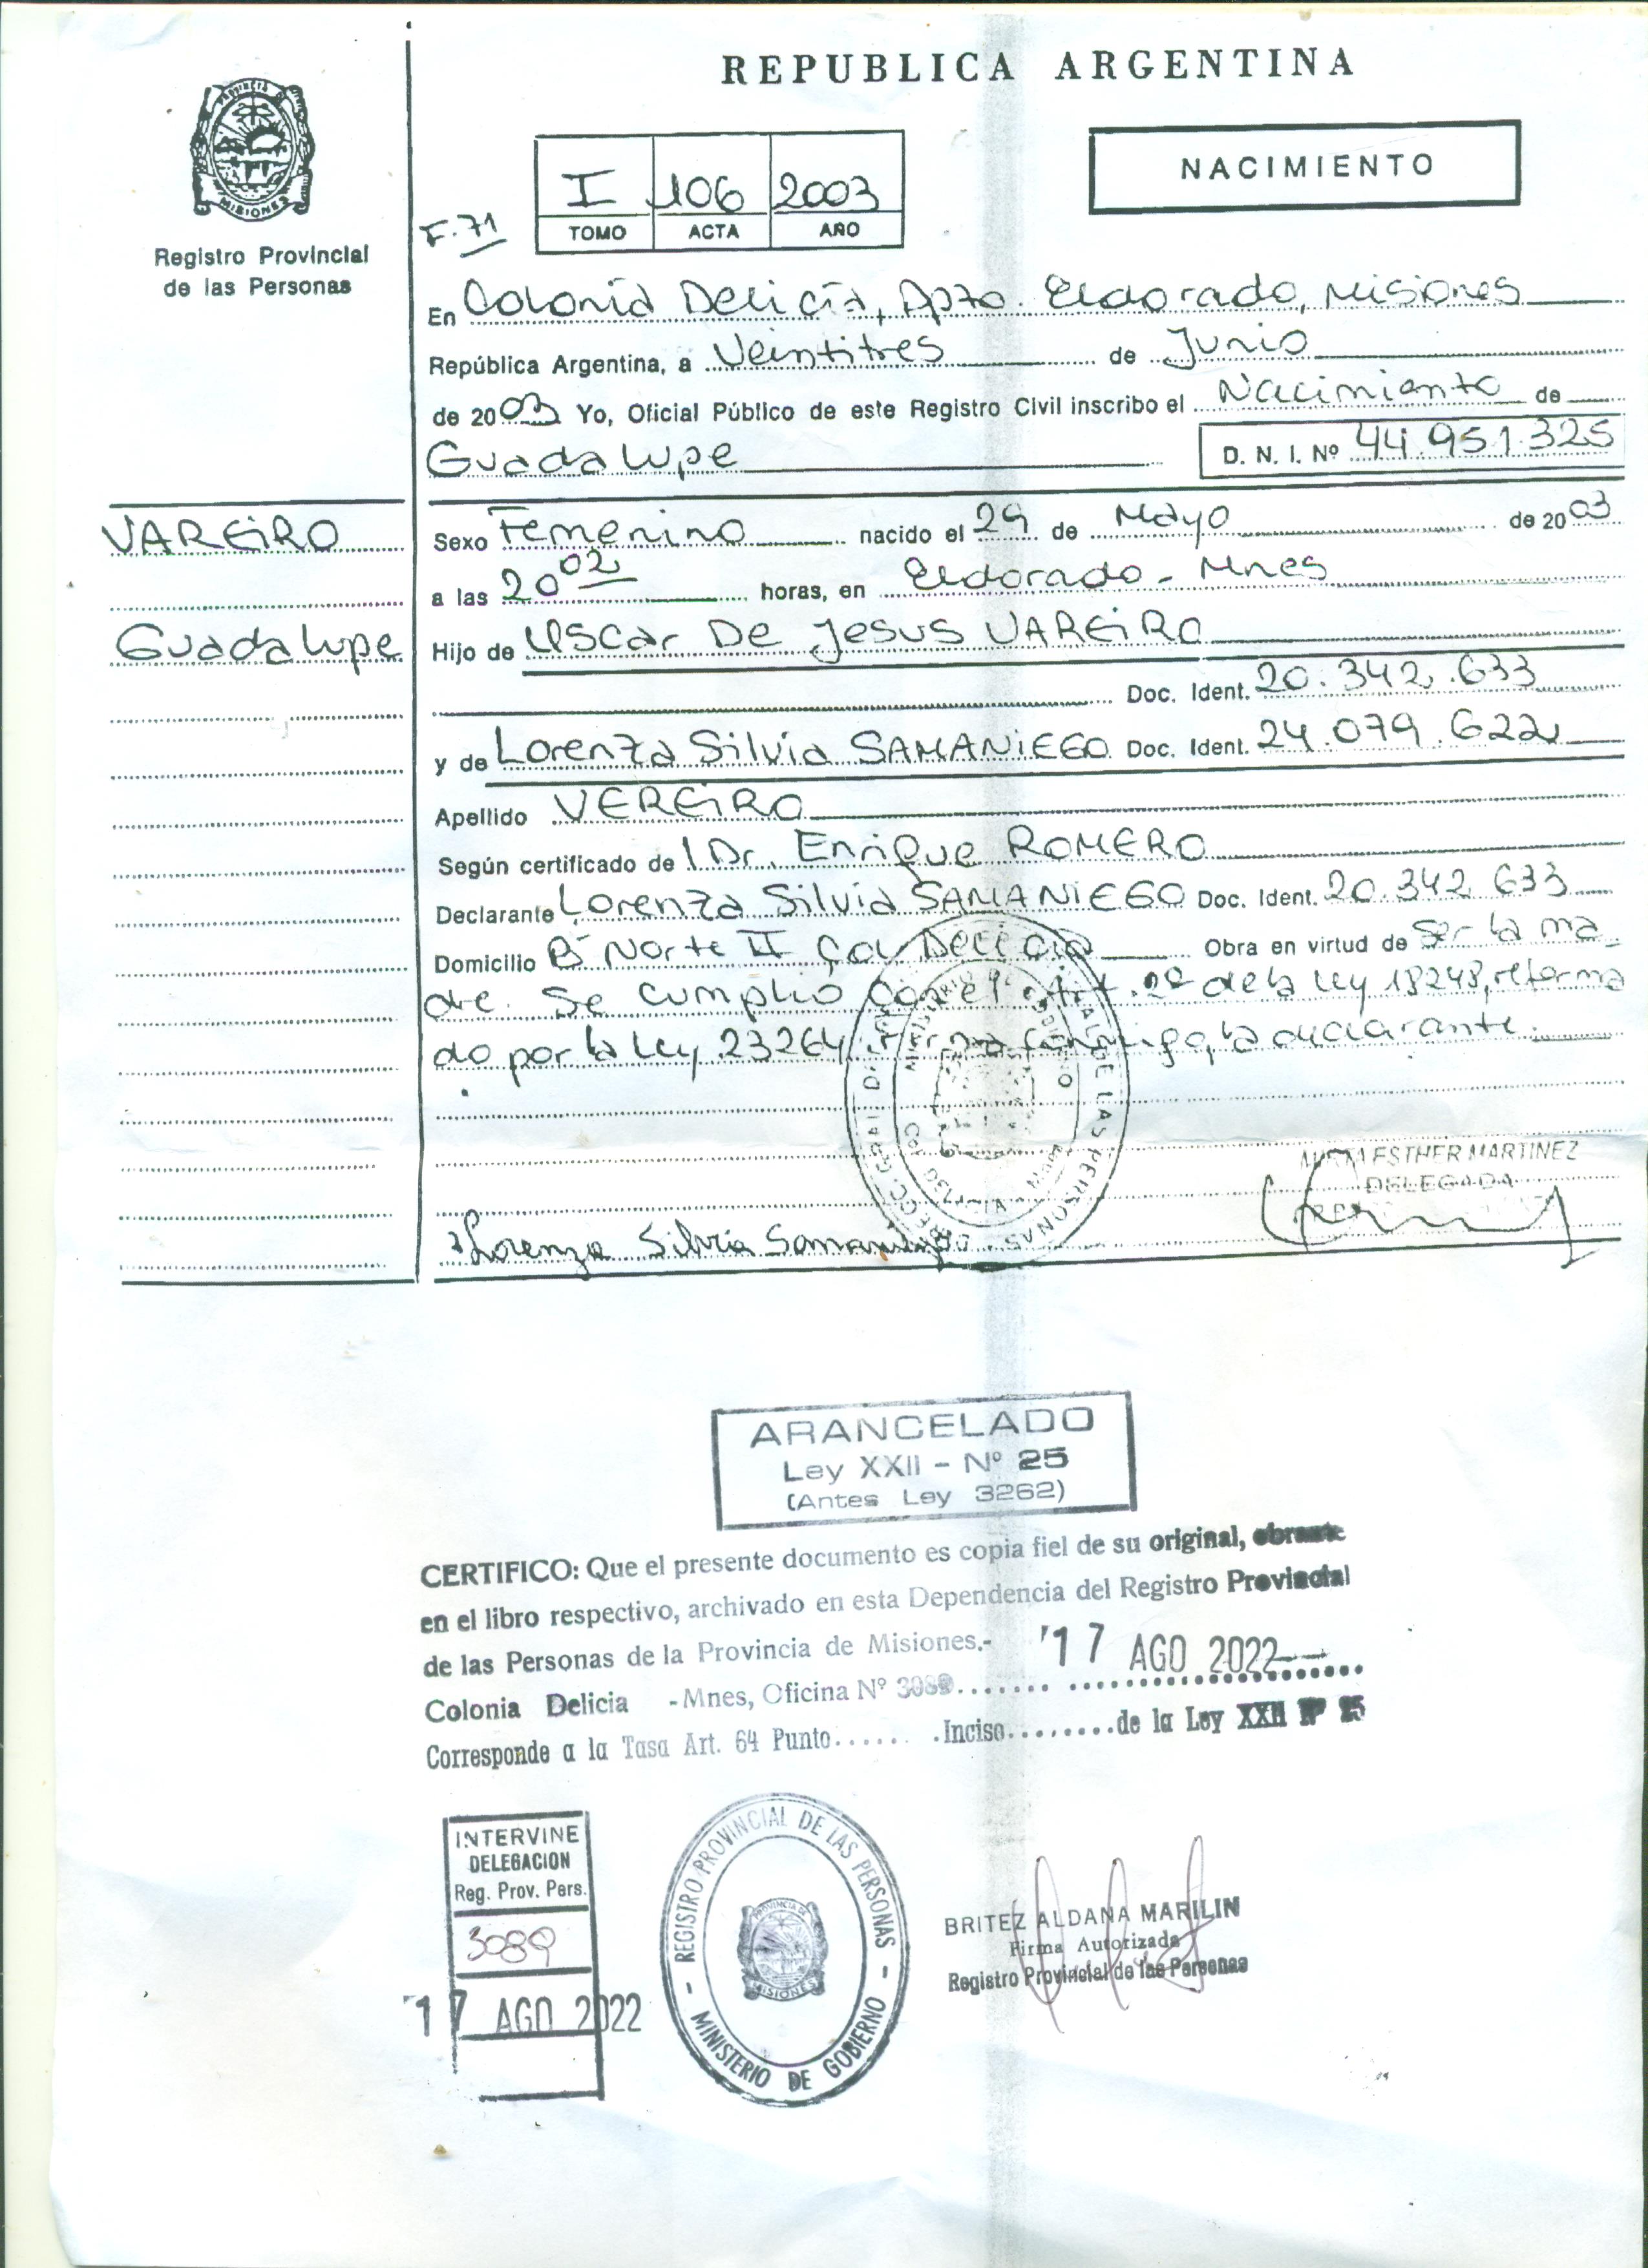 REPUBLICA ARGENTINA
PROVINCIA DE
MISIONES
Registro Provincial
de las Personas
NACIMIENTO
F. 71
I 106 2003
TOMO ACTA AÑO
En Colonia Delicia, Dpto. Eldorado, Misiones
República Argentina, a Veintitres de Junio
de 2003 Yo, Oficial Público de este Registro Civil inscribo el Nacimiento de
Guadalupe D. N. I. Nº 44.951.325
VAREIRO
Guadalupe
Sexo Femenino nacido el 29 de Mayo de 2003
a las 20 02 horas, en Eldorado - Mnes
Hijo de Oscar De Jesus VAREIRO
Doc. Ident. 20.342.633
y de Lorenza Silvia SAMANIEGO Doc. Ident. 24.079.622
Apellido VEREIRO
Según certificado de l Dr. Enrique ROMERO
Declarante Lorenza Silvia SAMANIEGO Doc. Ident. 20.342 633
Domicilio Bº Norte II Col Delicia Obra en virtud de Ser la ma_
dre. Se cumplio con el Art. 2º de la Ley 18248, reforma
do por la Ley 23264. Firma conmigo, la declarante.
ESTHER MARTINEZ
DELEGADA
Lorenza Silvia Samaniego
ARANCELADO
Ley XXII - Nº 25
(Antes Ley 3262)
CERTIFICO: Que el presente documento es copia fiel de su original, obrante
en el libro respectivo, archivado en esta Dependencia del Registro Provincial
de las Personas de la Provincia de Misiones.- 17 AGO 2022
Colonia Delicia - Mnes, Oficina Nº 3089
Corresponde a la Tasa Art. 64 Punto....... .Inciso........de la Ley XXII Nº 25
INTERVINE
DELEGACION
Reg. Prov. Pers.
3089
17 AGO 2022
- REGISTRO PROVINCIAL DE LAS PERSONAS -
MINISTERIO DE GOBIERNO
PROVINCIA DE
MISIONES
BRITEZ ALDANA MARILIN
Firma Autorizada
Registro Provincial de las Personas